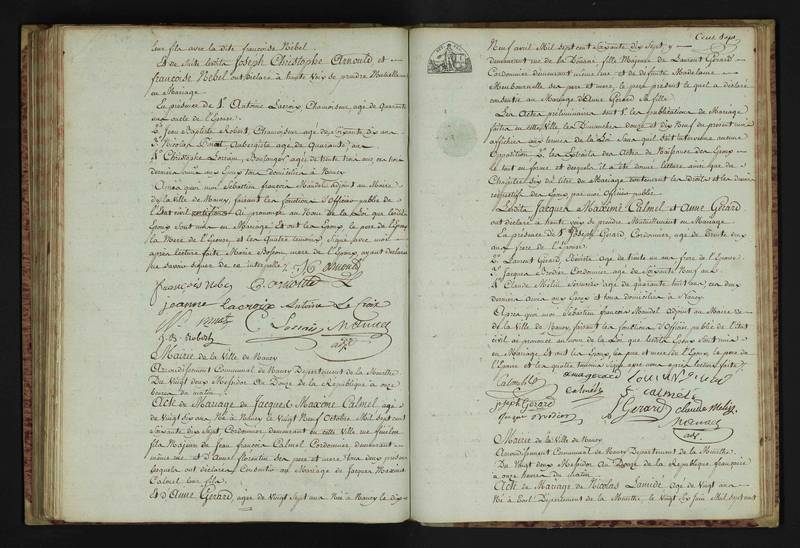 leur fils avec la dite françoise Nebel.
Et de suite lesdits Joseph Christophe Arnould et
françoise Nebel ont déclaré à haute voix se prendre Mutuellement
en Mariage
En présence de 1° Antoine Lacroix, Chamoiseur, agé de Quarante
un oncle de l'Epouse
2° Jean Baptiste Robert, Chamoiseur, agé de Soixante dix ans
3° Nicolas Aubergiste agé de Quarante ans
4° Christophe Lorrain, Boulanger agé de trente trois ans ces trois
derniers amis aux Epoux tous domiciliés à Nancy
Après quoi moi Sébastien françois Mandel adjoint au Maire
de la Ville de Nancy, faisant les fonctions d'Officier public de
l'Etat civil ai prononcé au Nom de la Loi que lesdits
Epoux sont unis en Mariage. Et ont les Epoux, le pere de l'Epoux
la Mere de l'Epouse, et les Quatre témoins Signé avec moi
après lecture faite Marie Bosson mere de l'Epoux ayant déclaré
ne savoir signer de ce interpellée
françois Nebel C. arnould
jeanne lacroix Antoine La Croix
C. Lorrain Mandel
J. B. Robert adjt
Mairie de la Ville de Nancy
Arrondissement Communal de Nancy Département de la Meurthe
Du Vingt deux Messidor An Douze de la République à onze
heures du matin
Acte de Mariage de Jacques Maxime Calmel agé
de Vingt six ans Né à Nancy le Vingt Neuf Octobre Mil Sept cent
Soixante dix Sept, Cordonnier, demeurant en cette Ville rue
fils Majeur de Jean françois Calmel Cordonnier, demeurant
même rue et D'Anne florentin ses pere et mere, tous deux présens
lesquels ont déclaré Consentir au Mariage de Jacques Maxime
Calmel leur fils
Et d'Anne Gérard, agée de Vingt Sept ans Née à Nancy le dix
Cent Sept
Neuf avril Mil Sept cent Soixante dix Sept
demeurant rue de la Douane, fille Majeure de Laurent Gérard
Cordonnier demeurant même rue et de défunte Madelaine
ses pere et mere, le pere présent lequel a déclaré
consentir au Mariage d'Anne Gérard sa fille
Les Actes préliminaires sont 1° les publications de Mariage
faites en cette Ville les Dimanches douze et dix Neuf du présent mois
affichées aux termes de la Loi Sans qu'il soit intervenu aucune
Opposition 2° les Extraits des Actes de Naissance des Epoux
le tout en forme et desquels il a été donné lecture ainsi que du
Chapitre six du titre du Mariage concernant les droits et les devoirs
respectifs des Epoux par moi Officier public
Lesdits Jacques Maxime Calmel et Anne Gérard
ont déclaré à haute voix se prendre Mutuellement en Mariage
En présence de 1° Joseph Gérard, Cordonnier, agé de Trente
ans frere de l'Epouse
2° Laurent Gérard, Ebéniste agé de trente un ans frere de l'Epouse
3° Jacques Cordonnier agé de Soixante Neuf ans
4° Claude Melin Serrurier agé de quarante huit ans ces deux
derniers amis aux Epoux et tous domiciliés à Nancy
Après que moi Sébastien françois Mandel adjoint au Maire
de la Ville de Nancy, faisant les fonctions d'Officier public de l'Etat
civil ai prononcé au nom de la Loi que lesdits Epoux sont unis
en Mariage Et ont les Epoux, les pere et mere de l'Epoux le pere de
l'Epouse et les quatre témoins Signé avec moi après lecture faite
anne gerard
calmel f. calmel
joseph Gerard L. Gerard claude Melin
Mandel
adj.
Mairie de la Ville de Nancy
Arrondissement Communal de Nancy Département de la Meurthe
Du Vingt deux Messidor an Douze de la République française
à onze heures du matin
Acte de Mariage de Nicolas Lamide agé de Vingt ans
Né à Toul Département de la Meurthe le Vingt six Juin Mil Sept cent